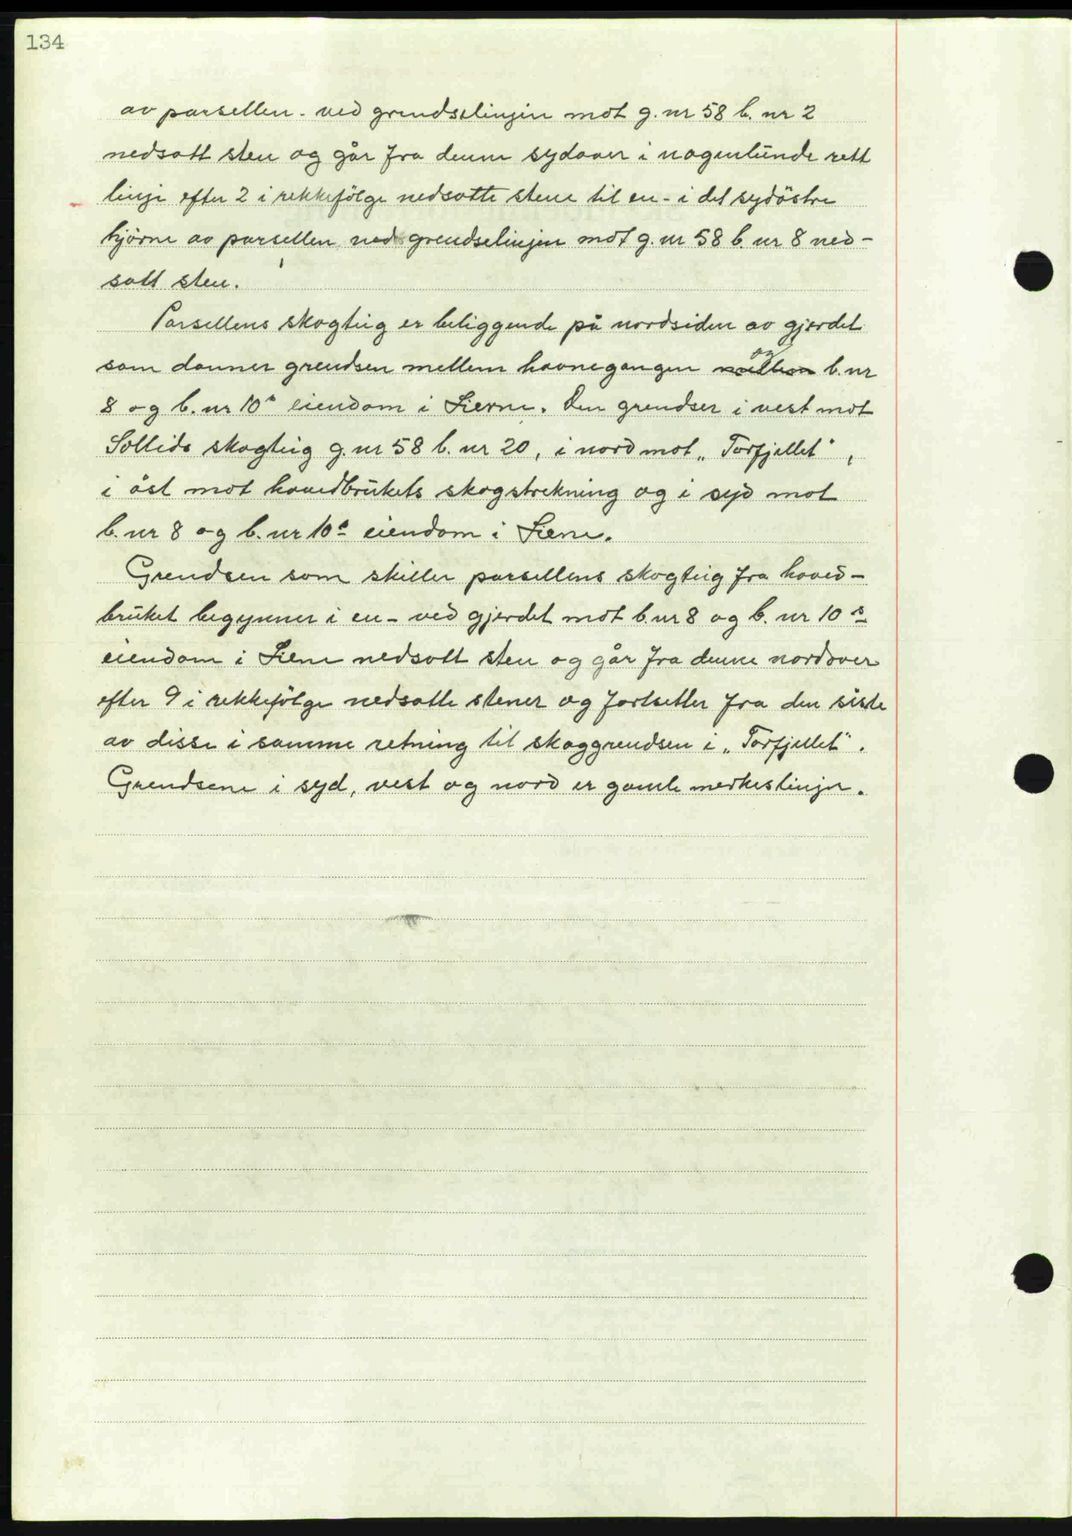 134
av parsellen - ved grendselinjen mot g. nr 58 b. nr 2
nedsatt sten og går fra denne sydover i nogenlunde rett
linje efter 2 i rekkefölge nedsatte stene til en - i det sydöstre
hjörne av parsellen ved grendselinjen mot g. nr 58 b. nr 8 ned-
satt sten.
Parsellens skogteig er beliggende på nordsiden av gjerdet
som danner grendsen mellem havnegangen og b. nr
8 og b. nr 10 eiendom i Lierne. Den grendser i vest mot
Sollids skogteig g. nr 58 b. nr 20, i nord mot „Torfjellet",
i öst mot hovedbrukets skogstrekning og i syd mot
b. nr 8 og b. nr 10 eiendom i
Grendsen som skiller parsellens skogteig fra hoved-
bruket begynner i en - ved gjerdet mot b. nr 8 og b. nr 10
eiendom i nedsatt sten og går fra denne nordover
efter 9 i rekkefölge nedsatte stener og fortsetter fra den siste
av disse i samme retning til skoggrendsen i „Torfjellet".
Grendsene i syd, vest og nord er gamle merkeslinjer.